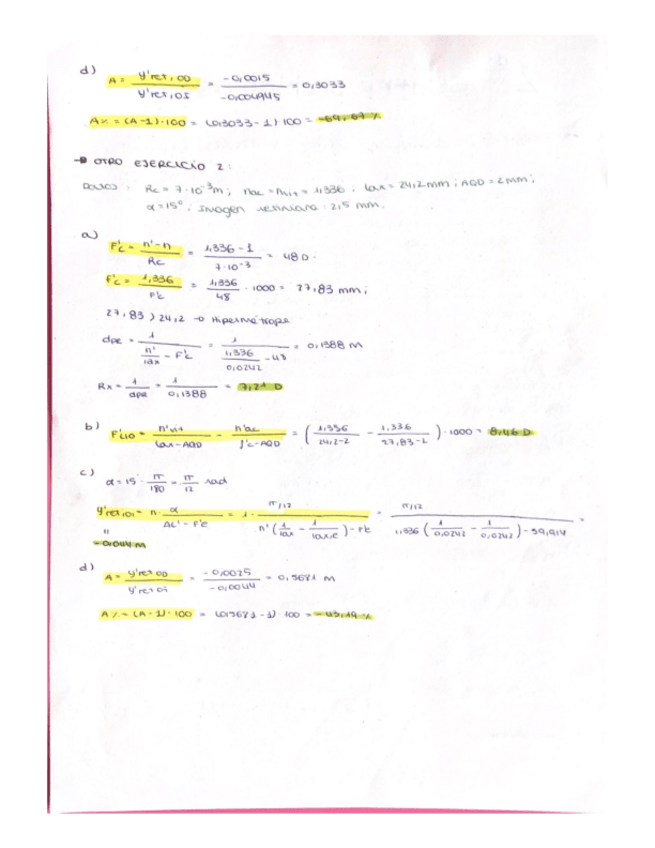 d) A = y'ret,OD / y'ret,OI = -0,0015 / -0,004945 = 0,3033
A% = (A-1)·100 = (0,3033-1) 100 = -69,67 %
→ OTRO EJERCICIO 2:
Datos: Rc = 7·10⁻³ m; nac = nvit = 1,336; lax = 24,2 mm; AQD = 2 mm;
α = 15°; Imagen retiniana: 2,5 mm.
a) F'c = n'-n / Rc = 1,336-1 / 7·10⁻³ = 48 D.
f'c = 1,336 / F'c = 1,336 / 48 · 1000 = 27,83 mm;
27,83 > 24,2 → Hipermétrope
dPR = 1 / (n'/lax - F'c) = 1 / (1,336/0,0242 - 48) = 0,1388 M
Rx = 1/dPR = 1/0,1388 = 7,21 D
b) F'LIO = n'vit / lax-AQD - n'ac / f'c-AQD = (1,336 / 24,2-2 - 1,336 / 27,83-2) · 1000 = 8,46 D
c) α = 15 · π/180 = π/12 rad
y'ret,OI = n · α / Ac'-F'e = 1 · π/12 / n'(1/lax - 1/lax,e)-F'e = π/12 / 1,336 (1/0,0242 - 1/0,0242) - 59,914 =
"
-0,044 M
d) A = y'ret OD / y'ret OI = -0,0025 / -0,0044 = 0,5681 M
A% = (A-1)·100 = (0,5681-1) 100 = -43,19 %